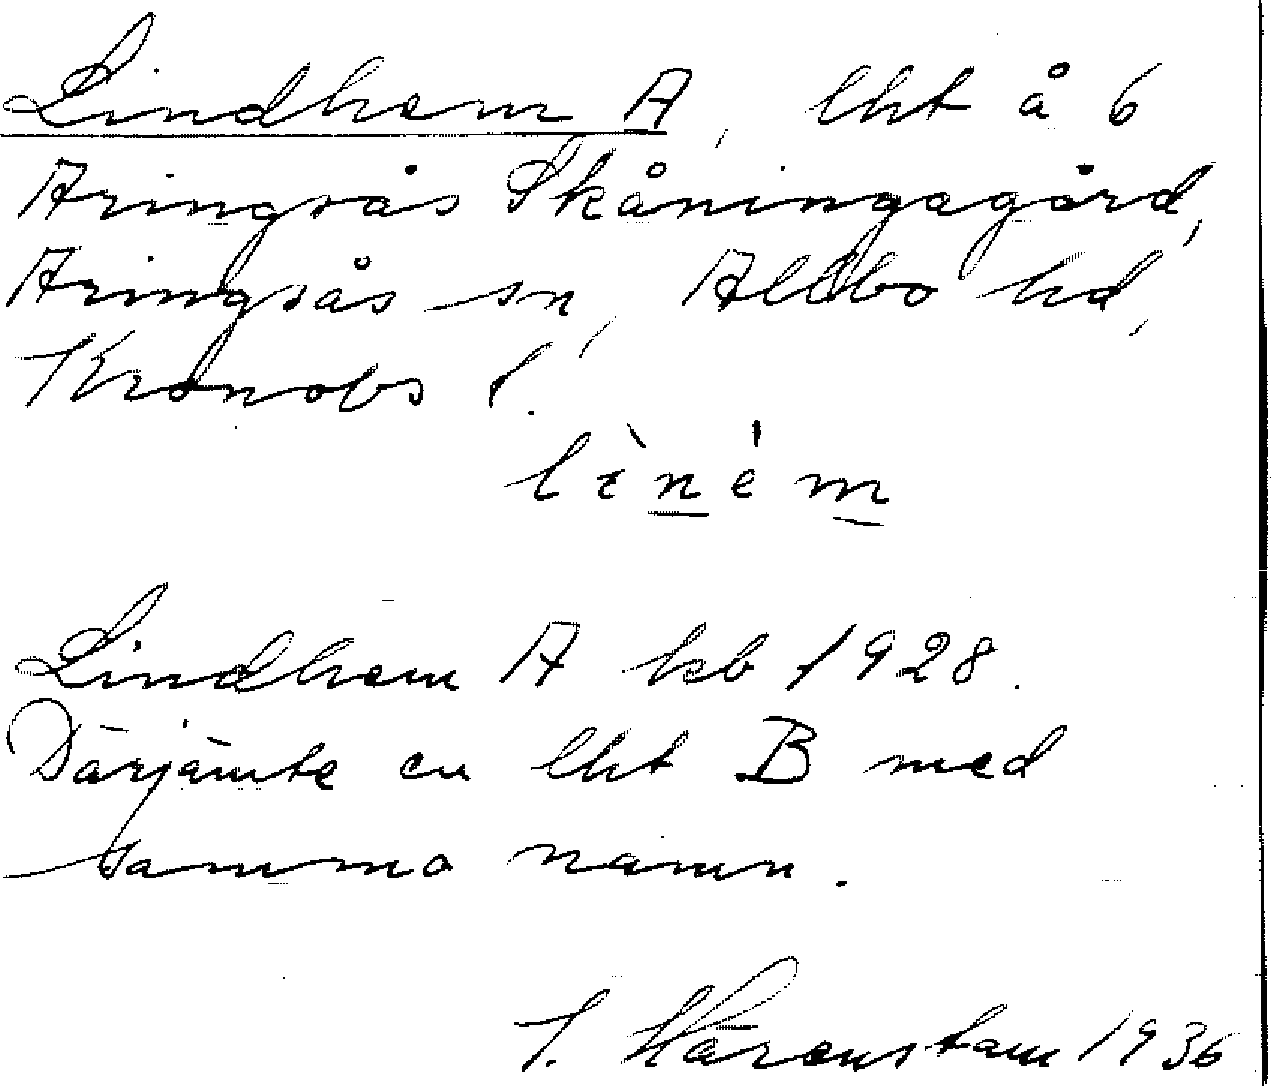 Lindhem A, lht å 6
Aringsås Skåningagård,
Aringsås sn, Allbo hd,
Kronobs l.
lìném
Lindhem A kb 1928.
Därjämte en lht B med
samma namn.
1936